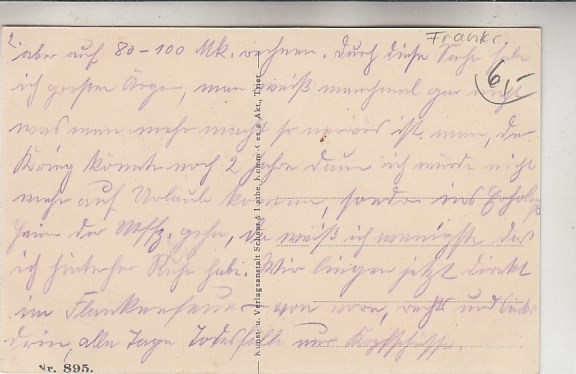 Frankr.
6,-
2
aber auf 80-100 Mk. rechnen. Durch diese Sache habe
ich großen Ärger, man weiß manchmal gar nicht
was man mehr macht so nervös ist man, der
Krieg könnte noch 2 Jahre dauern ich würde nicht
mehr auf Urlaub kommen, sondern ins Erholungs
heim der gehn, da weiß ich wenigstens daß
ich hinterher Ruhe habe. Wir liegen jetzt direkt
im Flankenfeuer von vorn, rechts und links
drin, alle Tage Todesfälle nur Kopfschüsse.
Nr. 895.
Kunst- u. Verlagsanstalt Schaar & Dathe, Komm.-Ges. a. Akt., Trier